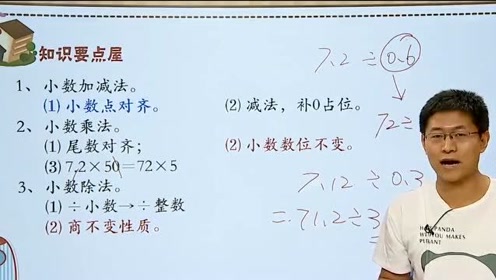 知识要点屋
1、小数加减法。
(1) 小数点对齐。 (2) 减法，补0占位。
2、小数乘法。
(1) 尾数对齐； (2) 小数数位不变。
(3) 7.2×50=72×5
3、小数除法。
(1) ÷小数→÷整数
(2) 商不变性质。
7.2÷0.6
72÷
7.12÷0.3
=71.2÷3
=
PANDA
MAKES